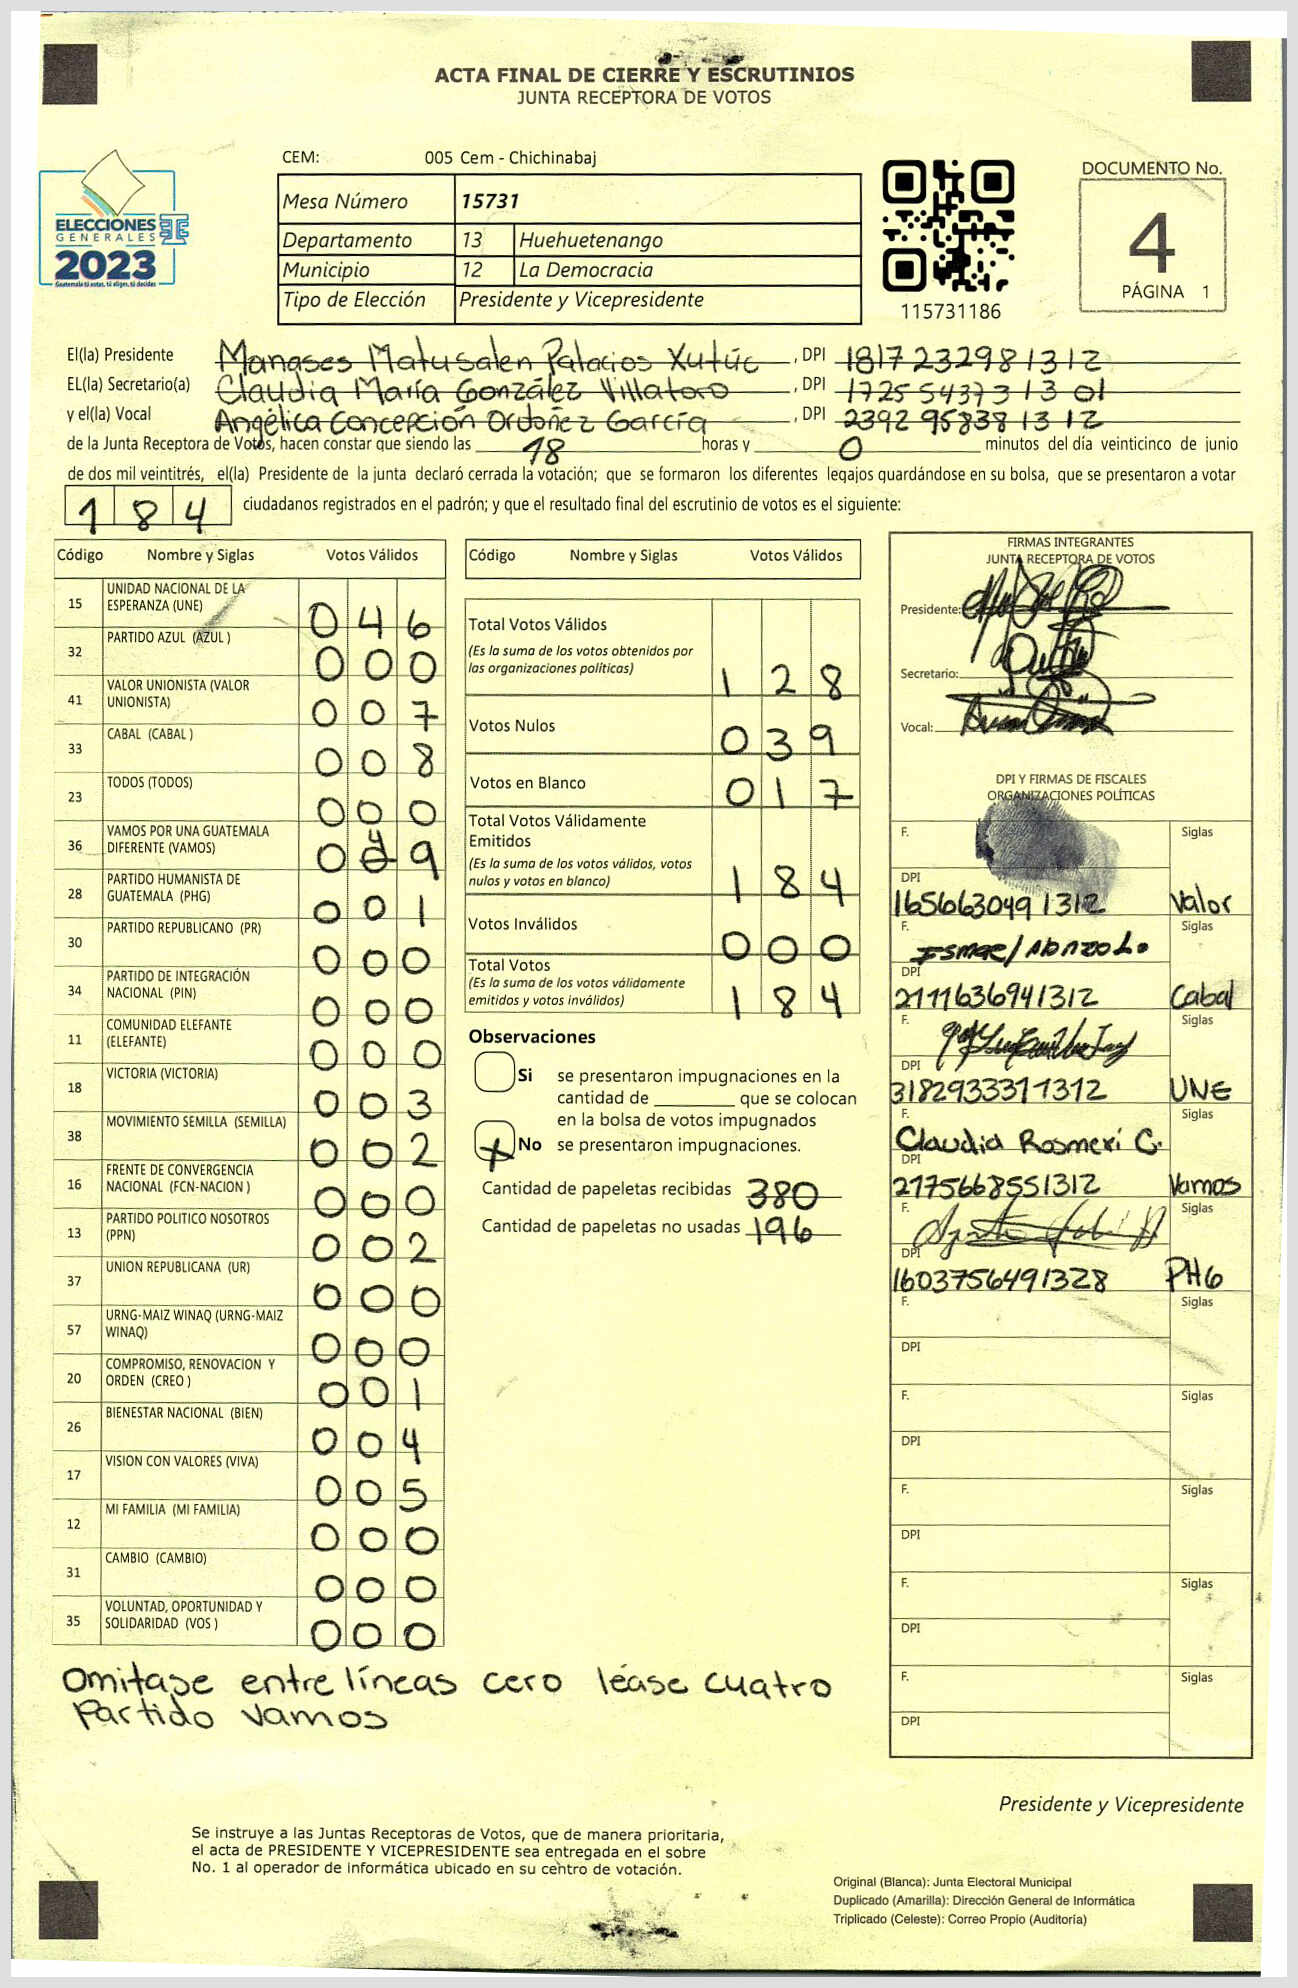 ACTA FINAL DE CIERRE Y ESCRUTINIOS
JUNTA RECEPTORA DE VOTOS
CEM: 005 Cem - Chichinabaj
Mesa Número 15731
Departamento 13 Huehuetenango
Municipio 12 La Democracia
Tipo de Elección Presidente y Vicepresidente
ELECCIONES
GENERALES
2023
Guatemala tú votas, tú eliges, tú decides
115731186
DOCUMENTO No.
4
PÁGINA 1
El(la) Presidente Manases Matusalen Palacios Xutúc, DPI 1817 23298 1312
EL(la) Secretario(a) Claudia María González Villatoro, DPI 1725 54373 1301
y el(la) Vocal Angélica Concepción Ordoñez García, DPI 2392 95838 1312
de la Junta Receptora de Votos, hacen constar que siendo las 18 horas y 0 minutos del día veinticinco de junio
de dos mil veintitrés, el(la) Presidente de la junta declaró cerrada la votación; que se formaron los diferentes legajos quardándose en su bolsa, que se presentaron a votar
184 ciudadanos registrados en el padrón; y que el resultado final del escrutinio de votos es el siguiente:
Código Nombre y Siglas Votos Válidos
15 UNIDAD NACIONAL DE LA ESPERANZA (UNE) 046
32 PARTIDO AZUL (AZUL ) 000
41 VALOR UNIONISTA (VALOR UNIONISTA) 007
33 CABAL (CABAL ) 008
23 TODOS (TODOS) 000
36 VAMOS POR UNA GUATEMALA DIFERENTE (VAMOS) 049
28 PARTIDO HUMANISTA DE GUATEMALA (PHG) 001
30 PARTIDO REPUBLICANO (PR) 000
34 PARTIDO DE INTEGRACIÓN NACIONAL (PIN) 000
11 COMUNIDAD ELEFANTE (ELEFANTE) 000
18 VICTORIA (VICTORIA) 003
38 MOVIMIENTO SEMILLA (SEMILLA) 002
16 FRENTE DE CONVERGENCIA NACIONAL (FCN-NACION ) 000
13 PARTIDO POLITICO NOSOTROS (PPN) 002
37 UNION REPUBLICANA (UR) 000
57 URNG-MAIZ WINAQ (URNG-MAIZ WINAQ) 000
20 COMPROMISO, RENOVACION Y ORDEN (CREO ) 001
26 BIENESTAR NACIONAL (BIEN) 004
17 VISION CON VALORES (VIVA) 005
12 MI FAMILIA (MI FAMILIA) 000
31 CAMBIO (CAMBIO) 000
35 VOLUNTAD, OPORTUNIDAD Y SOLIDARIDAD (VOS ) 000
Omitase entre líneas cero léase cuatro
Partido Vamos
Código Nombre y Siglas Votos Válidos
Total Votos Válidos 128
(Es la suma de los votos obtenidos por
las organizaciones políticas)
Votos Nulos 039
Votos en Blanco 017
Total Votos Válidamente
Emitidos 184
(Es la suma de los votos válidos, votos
nulos y votos en blanco)
Votos Inválidos 000
Total Votos 184
(Es la suma de los votos válidamente
emitidos y votos inválidos)
Observaciones
Si se presentaron impugnaciones en la
cantidad de ________ que se colocan
en la bolsa de votos impugnados
X No se presentaron impugnaciones.
Cantidad de papeletas recibidas 380
Cantidad de papeletas no usadas 196
FIRMAS INTEGRANTES
JUNTA RECEPTORA DE VOTOS
Presidente:
Secretario:
Vocal:
DPI Y FIRMAS DE FISCALES
ORGANIZACIONES POLÍTICAS
F. Siglas
DPI
1656630491312 Valor
F. Ismael Alonzo L. Siglas
DPI
2111636941312 Cabal
F. Siglas
DPI
3182933311312 UNE
F. Claudia Rosmeri C. Siglas
DPI
2175668551312 Vamos
F. Siglas
DPI
1603756491328 PHG
F. Siglas
DPI
F. Siglas
DPI
F. Siglas
DPI
F. Siglas
DPI
F. Siglas
DPI
Presidente y Vicepresidente
Se instruye a las Juntas Receptoras de Votos, que de manera prioritaria,
el acta de PRESIDENTE Y VICEPRESIDENTE sea entregada en el sobre
No. 1 al operador de informática ubicado en su centro de votación.
Original (Blanca): Junta Electoral Municipal
Duplicado (Amarilla): Dirección General de Informática
Triplicado (Celeste): Correo Propio (Auditoría)